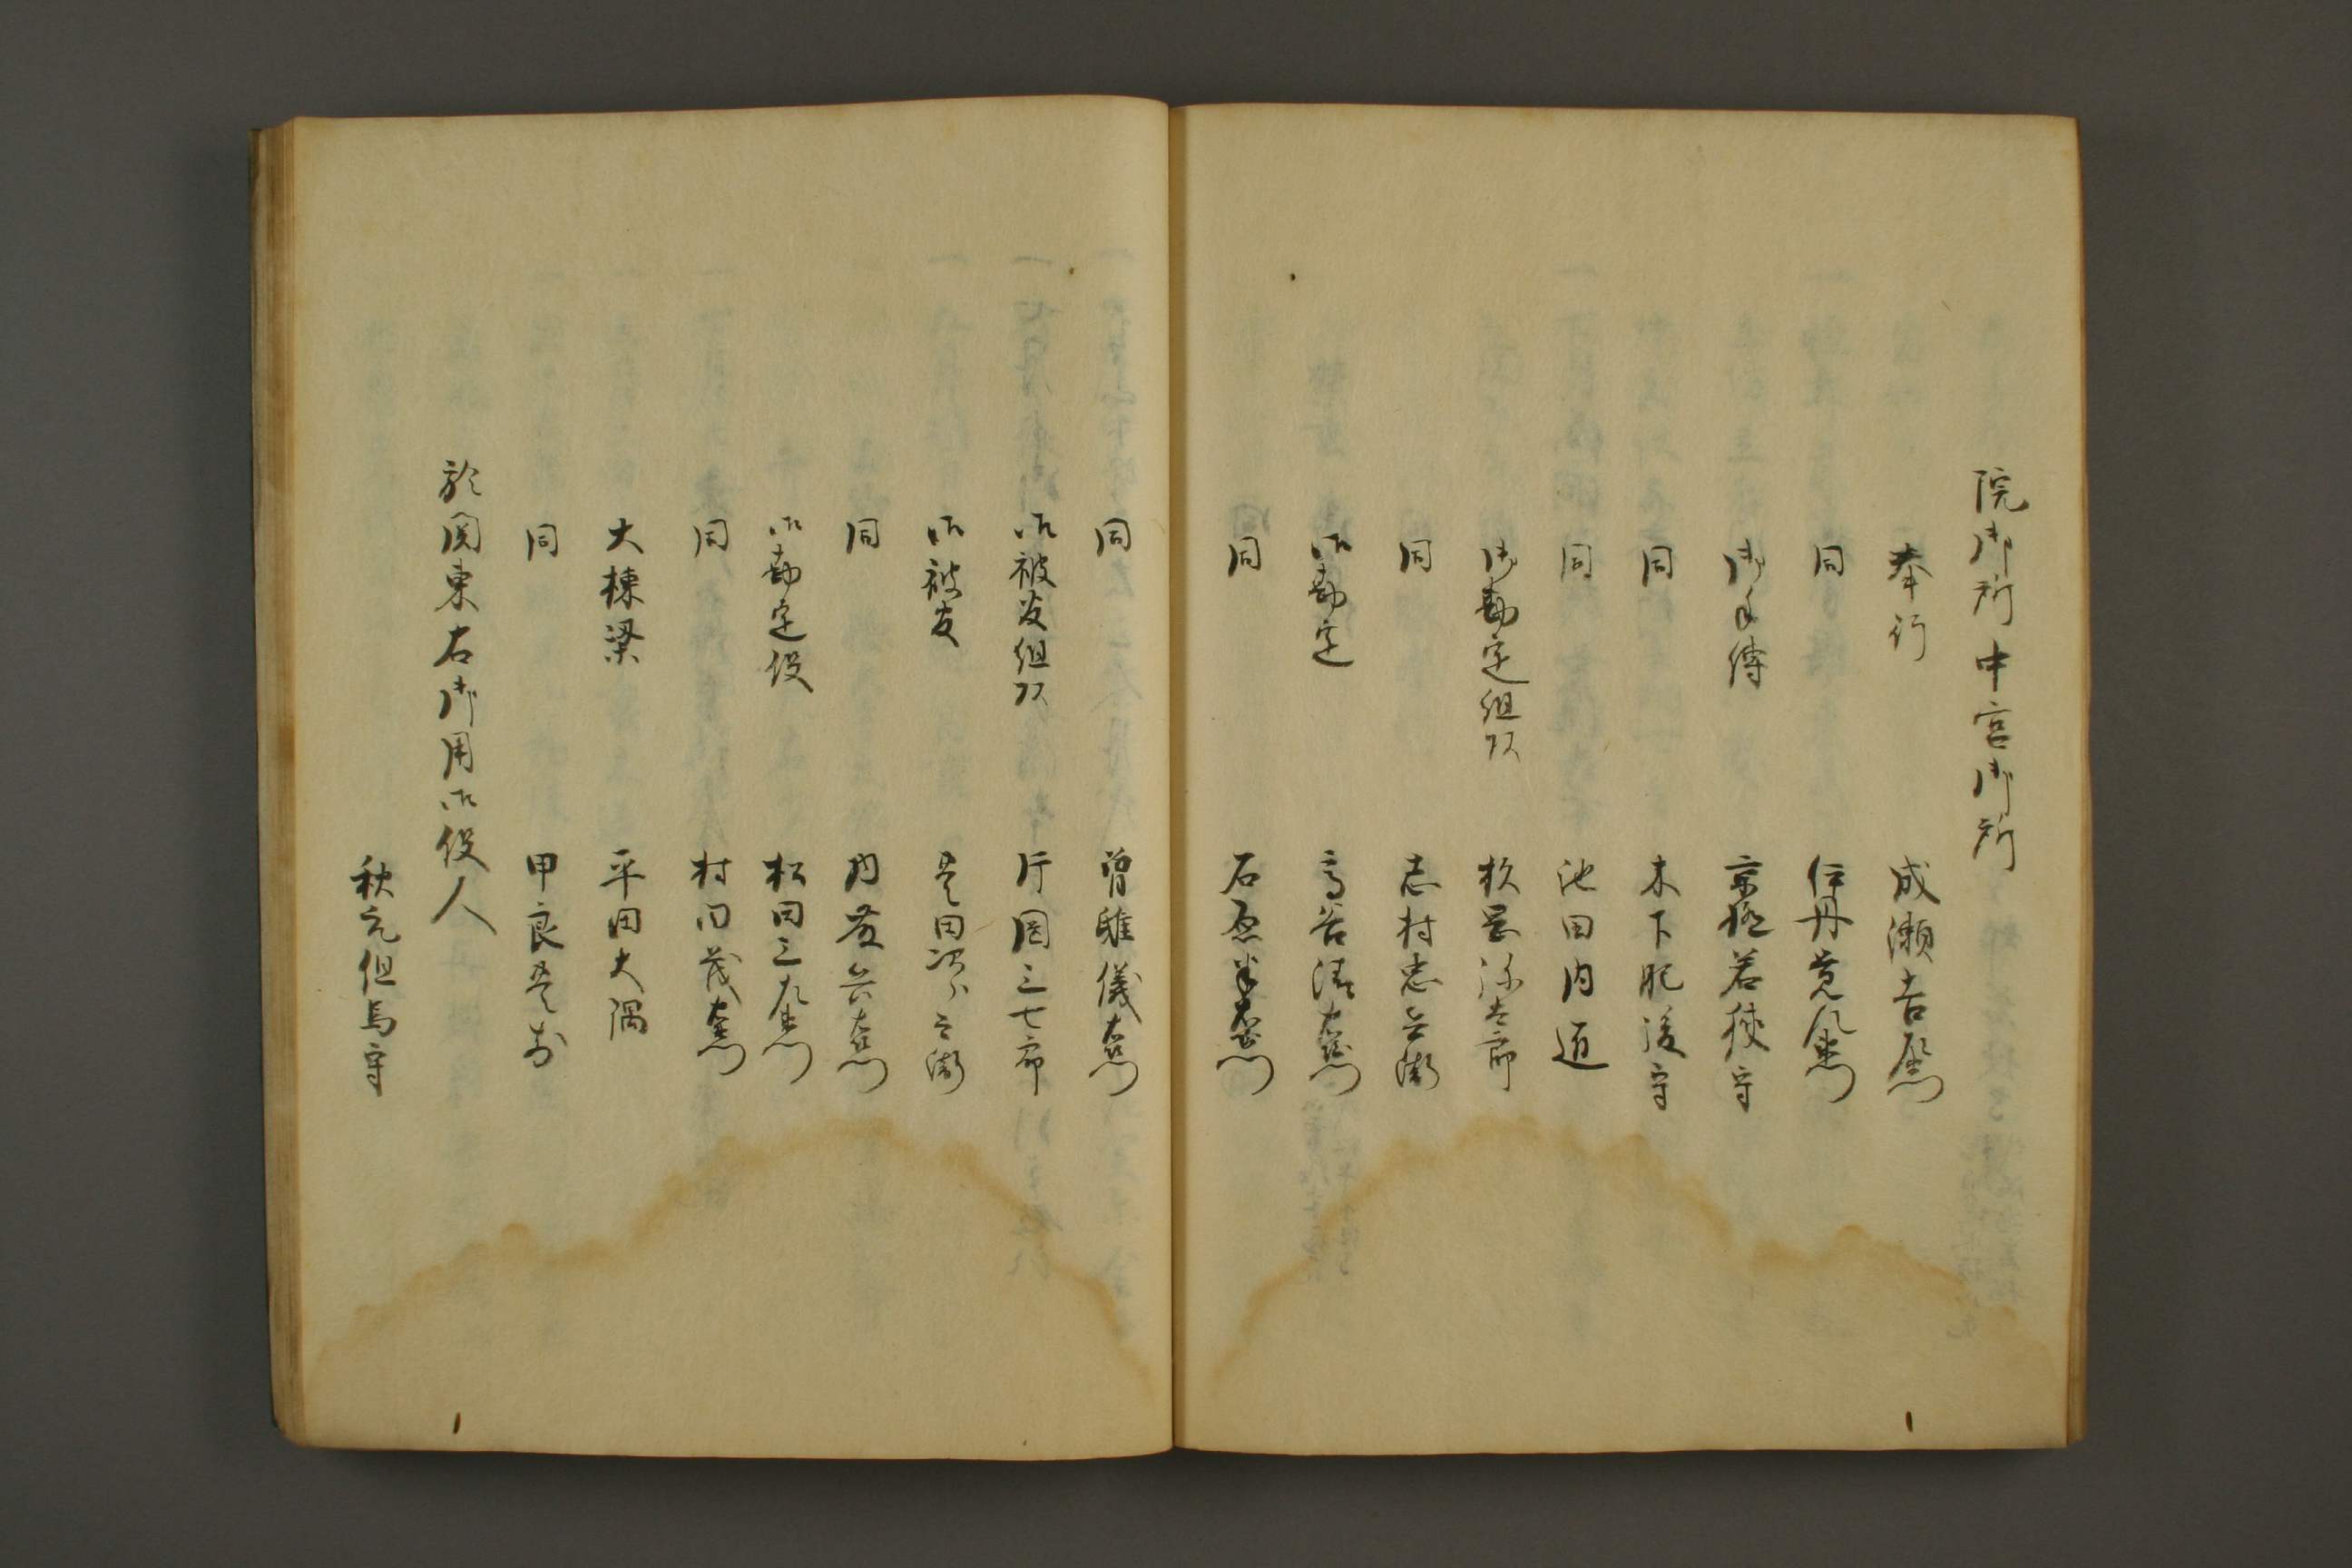 院御所中宮御所
奉行　成瀬吉右衛門
同　伊丹覚左衛門
御手傳　京極若狭守
同　木下肥後守
同　池田内匠
御勘定組頭　杉岡弥太郎
同　志村忠兵衛
御勘定　高谷清右衛門
同　石原半右衛門
同　曽雌儀右衛門
御被官組頭　片岡三七郎
御被官　豊田次兵衛
同　内藤六右衛門
御勘定役　松田三左衛門
同　村田茂右衛門
大棟梁　平田大隅
同　甲良豊前
於関東右御用御役人
秋元但馬守